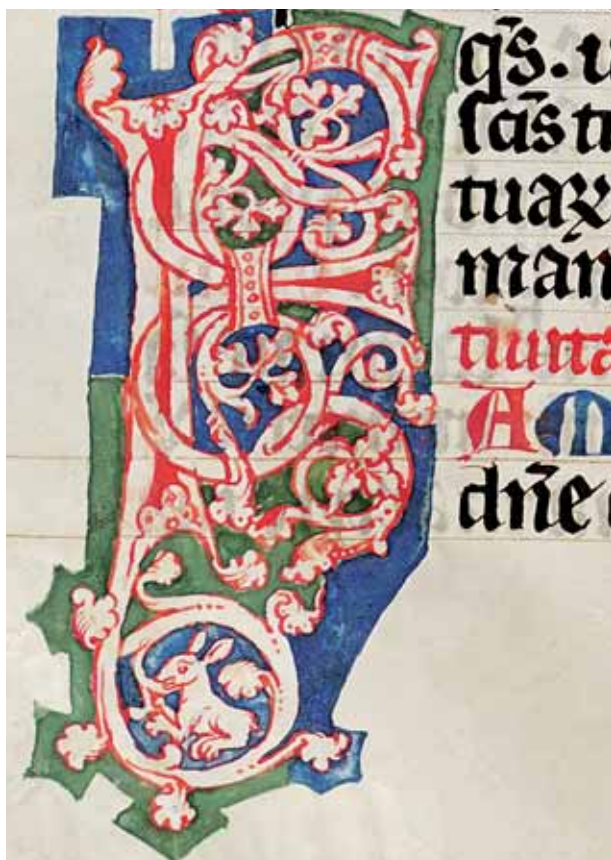 q̄s. u
ſcīs tu
tuaꝝ
man
tiuita
AM
dn̄e